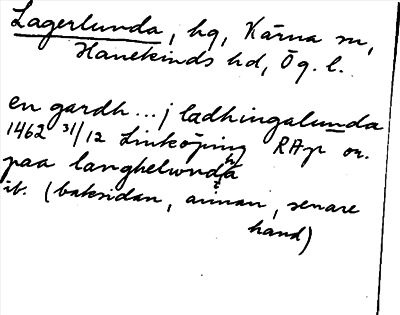 Lagerlunda, hg, Kärna sn,
Hanekinds hd, Ög. l.
en gardh ... j ladhingalunda
1462 31/12 Linköping RAp or.
paa langhelundha
ib. (baksidan, annan, senare
hand)